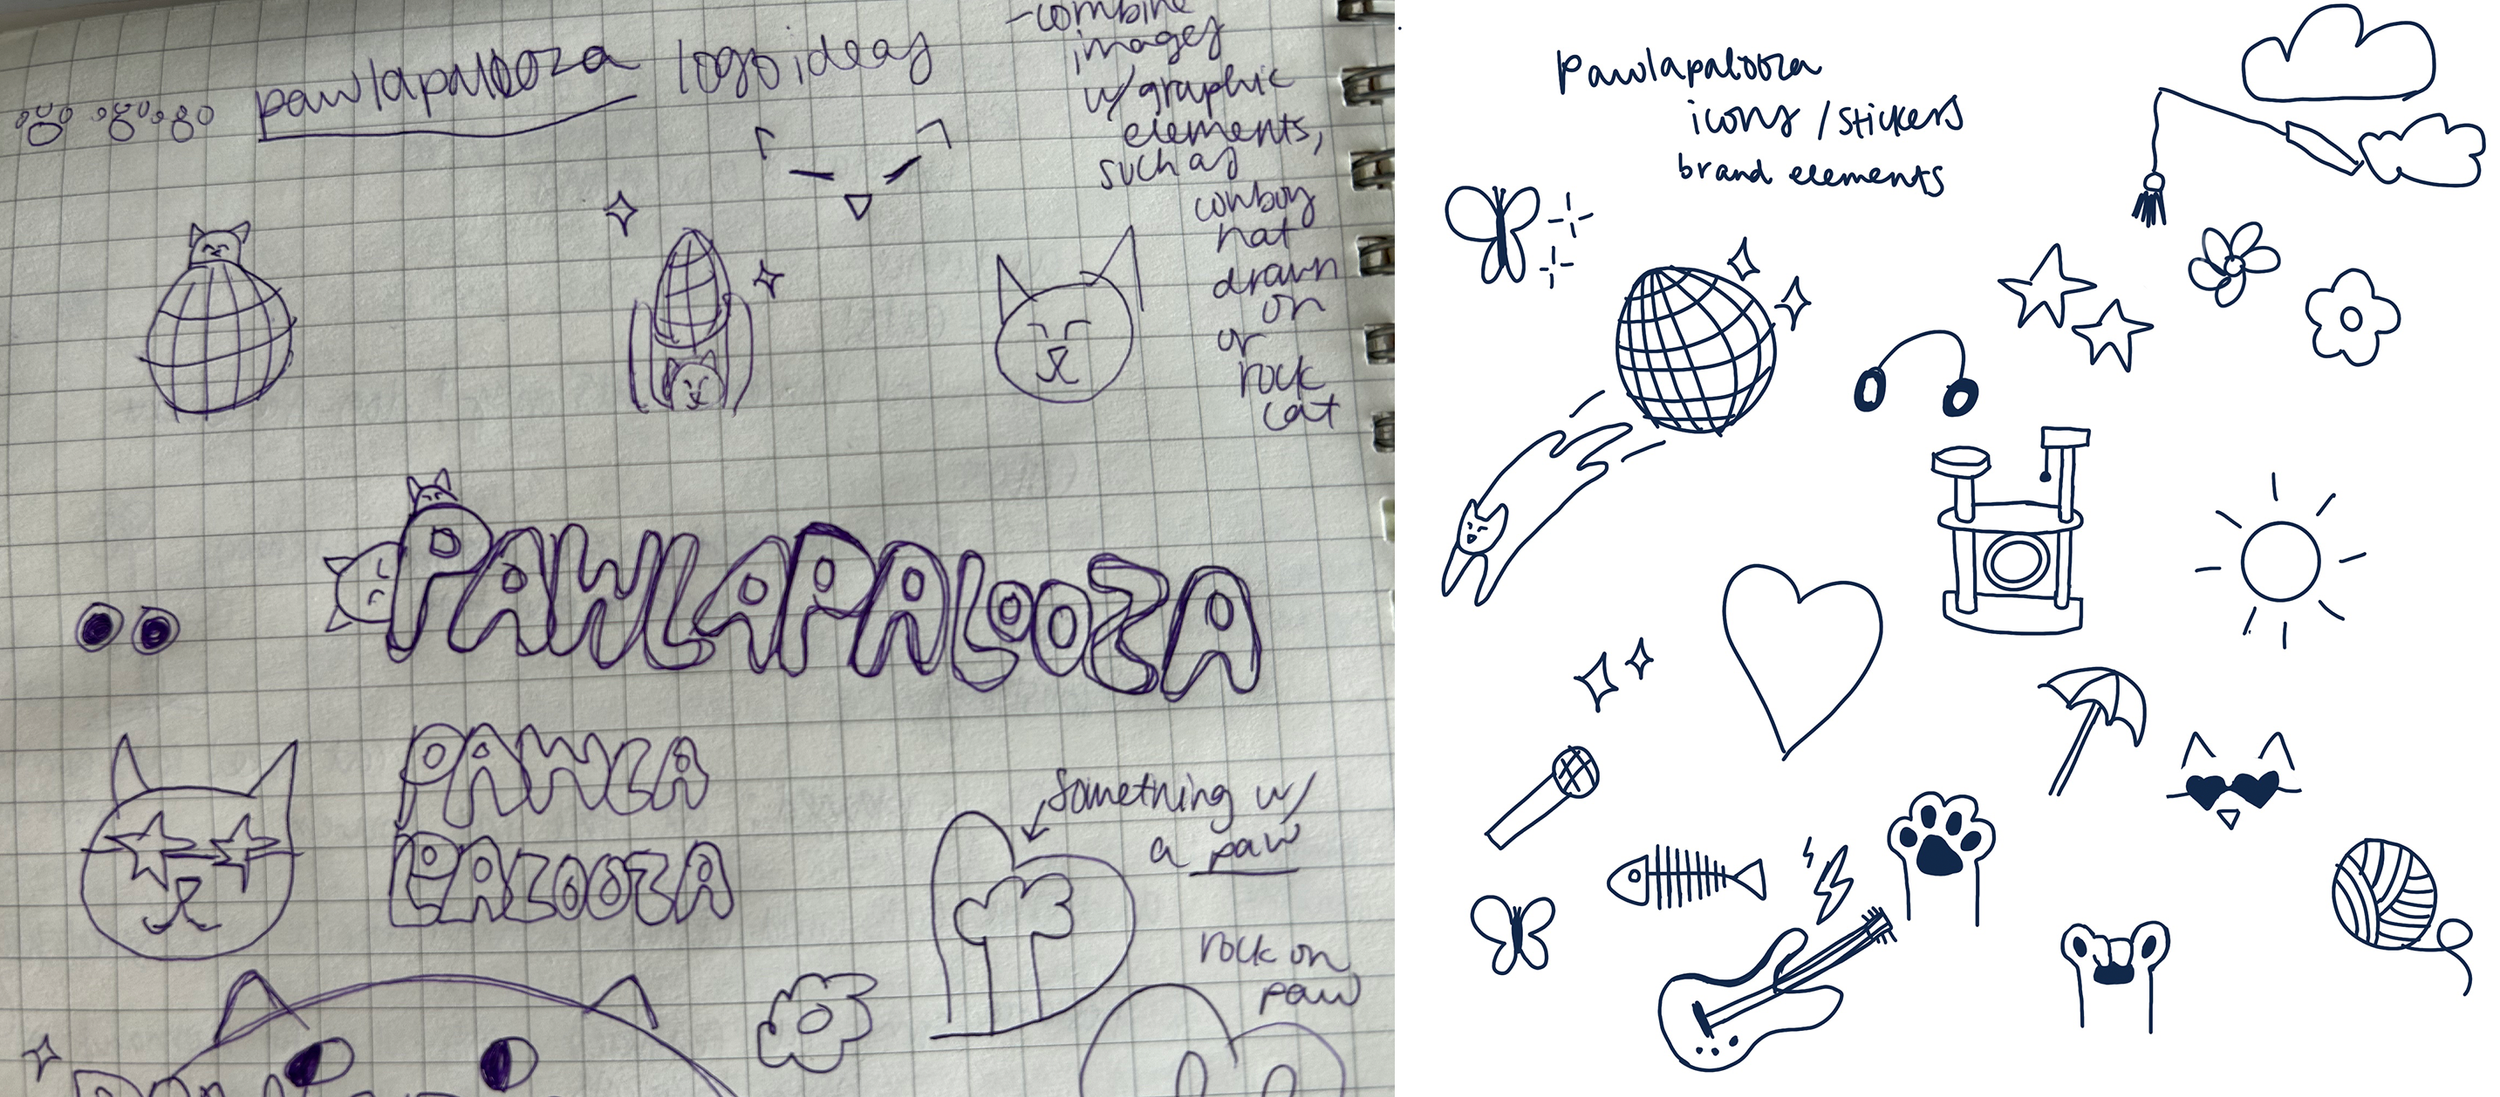 pawlapalooza logo ideas
-combine
images
w/graphic
elements,
such as
cowboy
hat
drawn
on
or
rock
cat
PAWLAPALOOZA
PAWLA
PALOOZA
something w/
a paw
rock on
paw
pawlapalooza
icons / stickers
brand elements